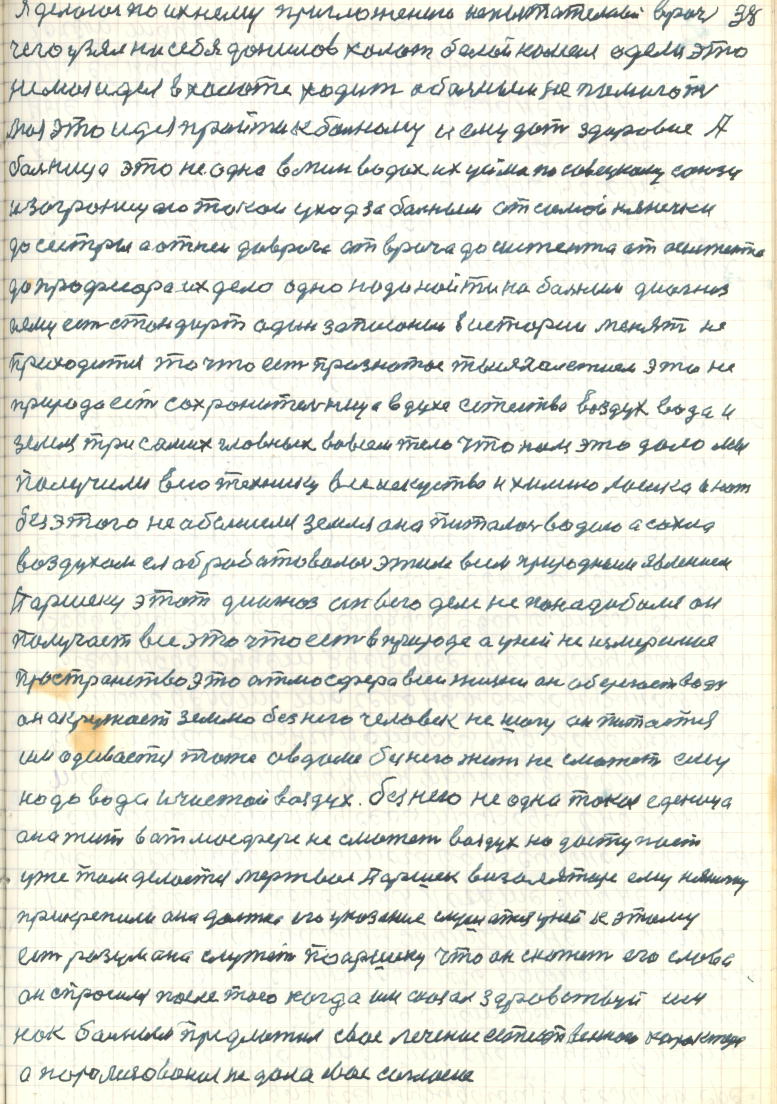 Я делаюсь по ихнему приглошению испытателем врач 38
чего узял на себя донилов халат белой намея одеть это
не моя идея в халоте ходить а больным не помогать
моя это идея пройти к больному и ему дать здоровие А
больница это не одна в мин водах их уйма по совецкому союзу
и за гроницаю токой уход за больным от самой нянечки
до сестры а от ней доврача от врача до систента от осистента
до профисора их дело одно надо найти на больным диагноз
йму есть стондарт один записоный в истории менять не
приходится то что есть признатое тысячалетием это не
природа есть сохронительница в духе естество воздух вода и
земля три самих главных во всем тело что нам это дало мы
получили всю технику все искуство и химию
без этого не абашлися земля она питалась водою а сохла
воздухом ея абработовали этим всем природным явлением
Паршеку этот диагноз от всего дела не понадобился он
получает все это что есть в природе а у ней не измеримое
пространство это атмосфера всей жизни он оберегает воду
он акружает землю без него человек не шагу он питается
им одивается тоже а в доме без него жить не сможет ему
надо вода и чистой воздух. без него не одна токая еденица
она жить в атмосфере не сможет воздух не доступает
уже там делается мертвое Паршек в изоляторе ему няничку
прикрепили она должна его указание слушатся у ней к этому
есть разум она служить Поаршеку что он скажет его слова
он спросил после того когда им сказал здравствуй им
как больным предложил свое лечение естественного характера
а порализованая не дала свое согласие